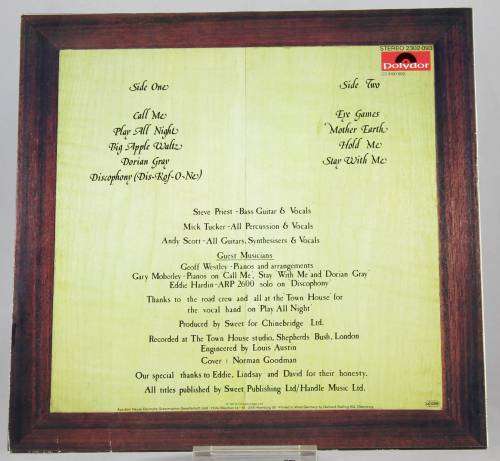 STEREO 2302 093
Polydor
Side One
Side Two
Call Me
Play All Night
Big Apple Waltz
Dorian Gray
Discophony (Dis-Kof-O-Ne)
Eye Games
Mother Earth
Hold Me
Stay With Me
Steve Priest - Bass Guitar & Vocals
Mick Tucker - All Percussion & Vocals
Andy Scott - All Guitars, Synthesisers & Vocals
Guest Musicians
Geoff Westley - Pianos and arrangements
Gary Moberley - Pianos on Call Me, Stay With Me and Dorian Gray
Eddie Hardin - ARP 2600 solo on Discophony
Thanks to the road crew and all at the Town House for
the vocal hand on Play All Night
Produced by Sweet for Chinebridge Ltd.
Recorded at The Town House studio, Shepherds Bush, London
Engineered by Louis Austin
Cover : Norman Goodman
Our special thanks to Eddie, Lindsay and David for their honesty.
All titles published by Sweet Publishing Ltd/Handle Music Ltd.